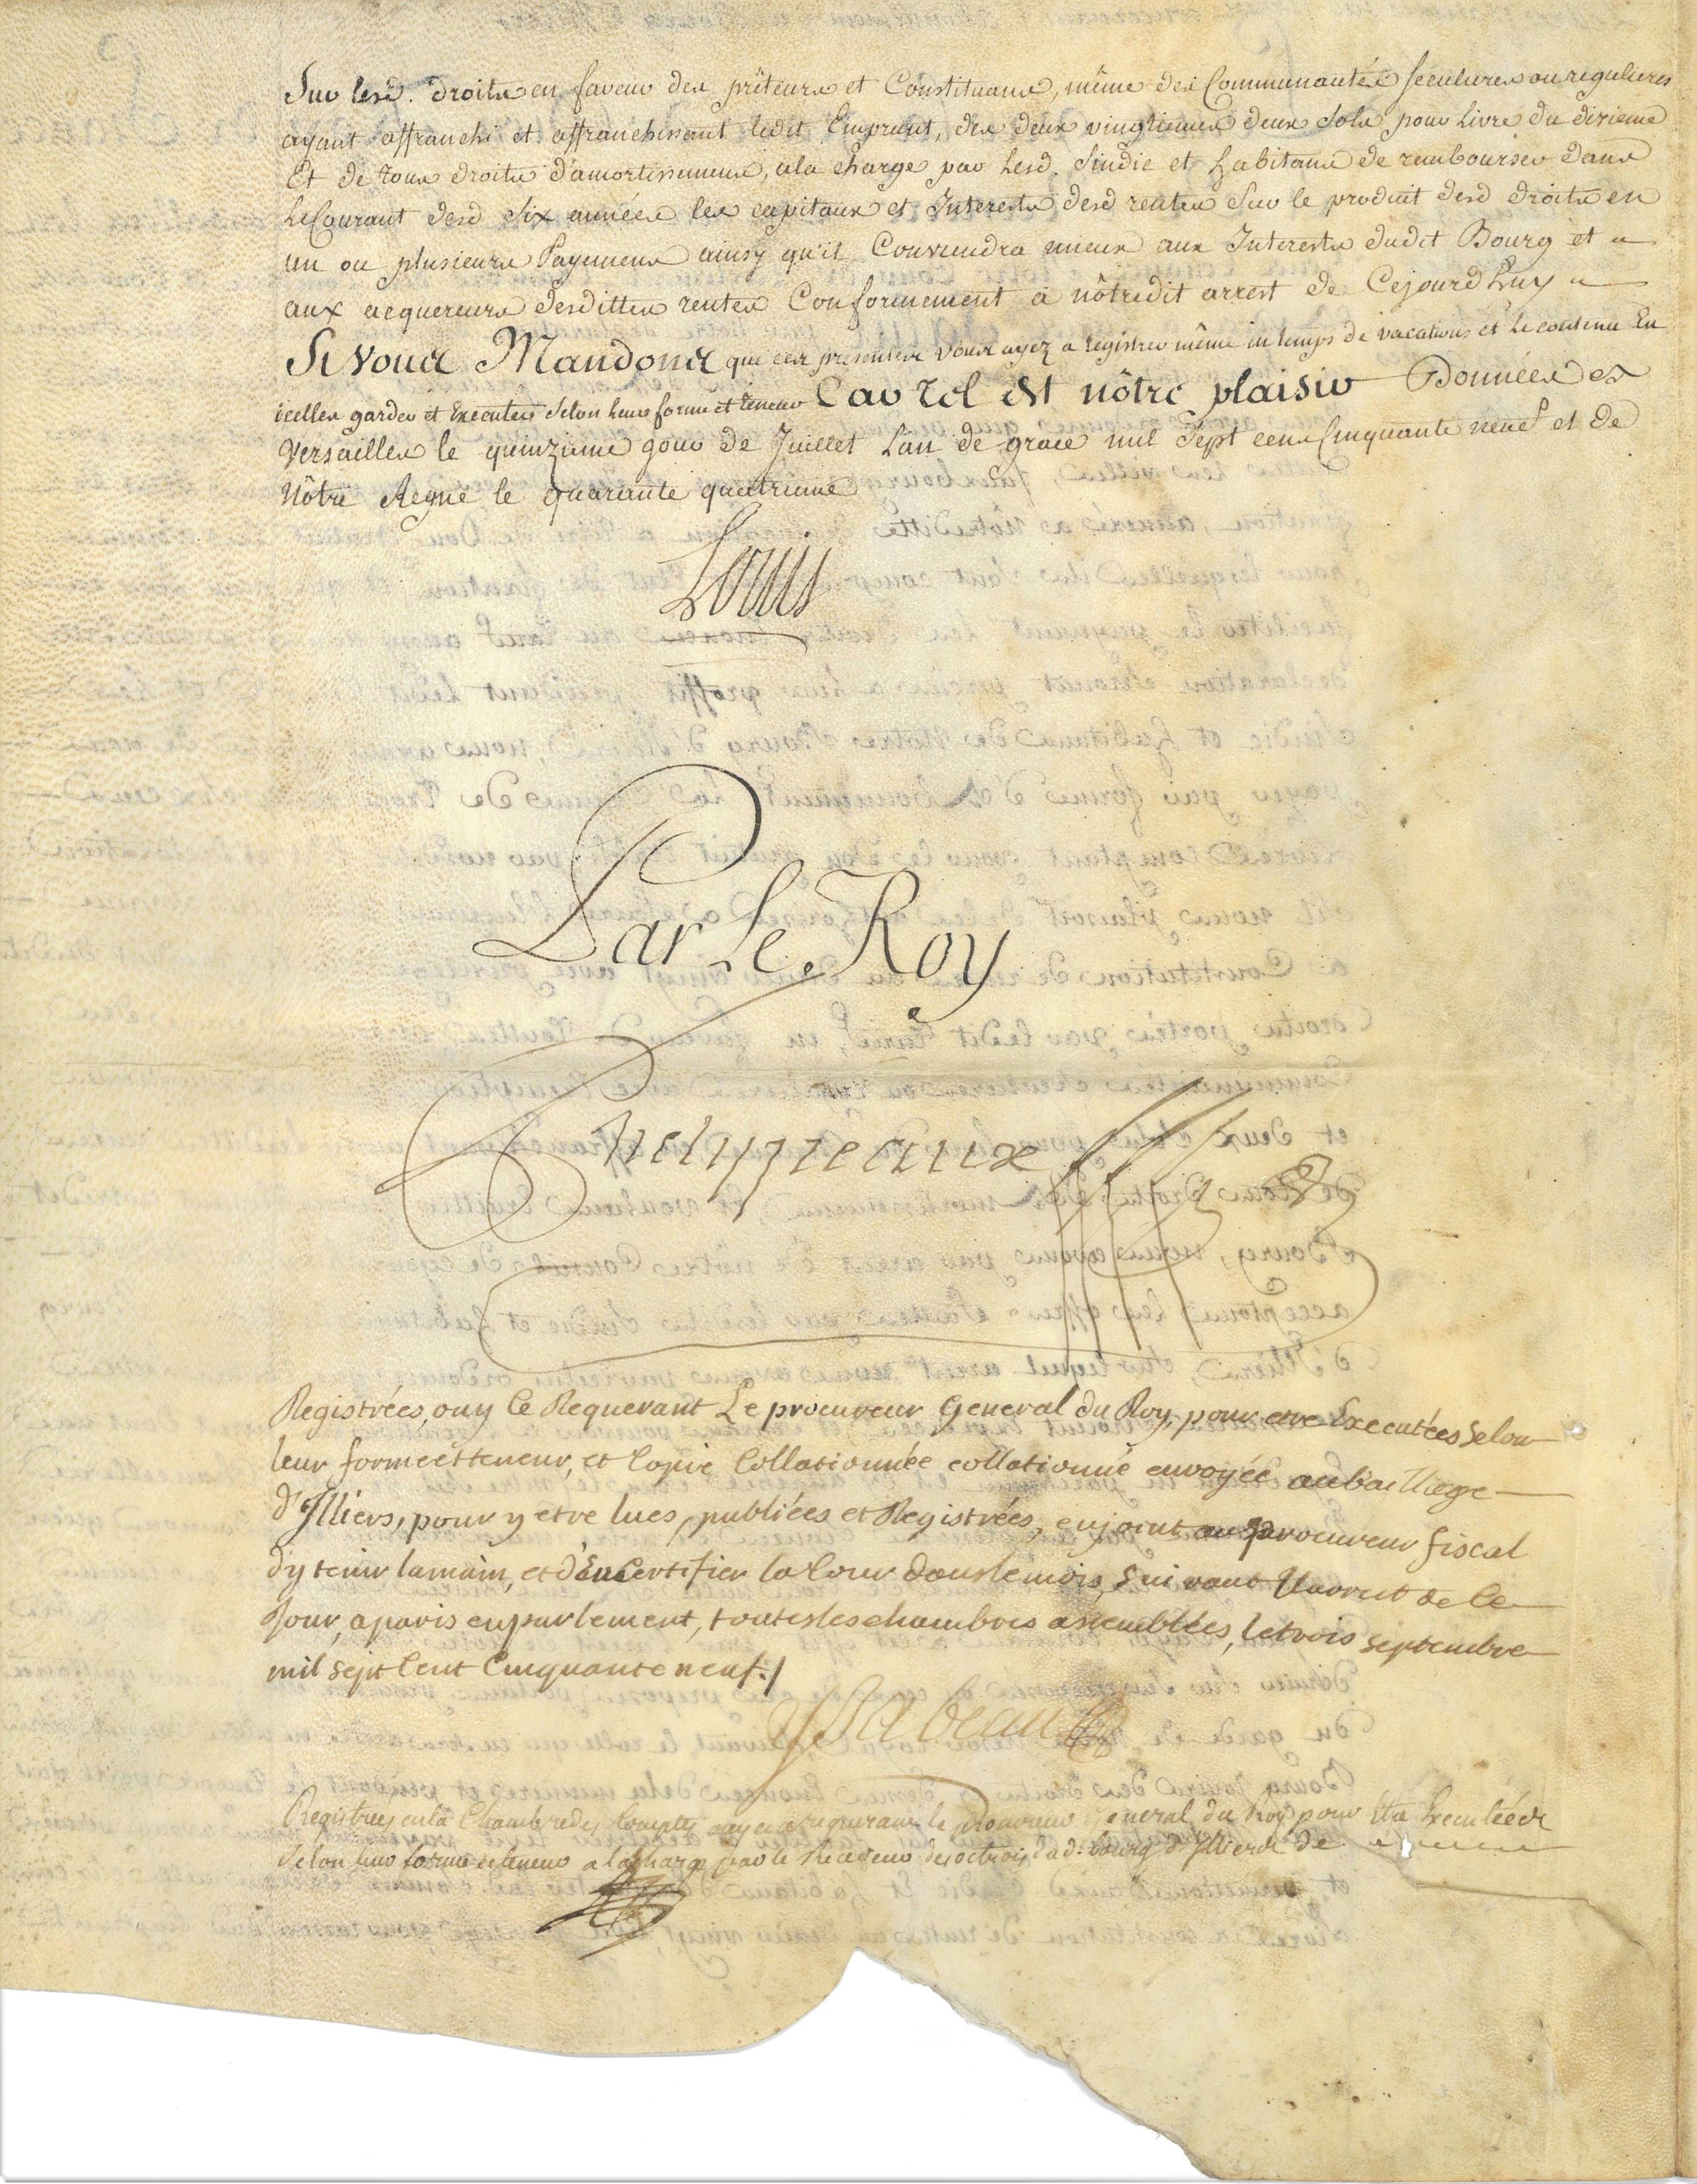 Sur lesd. droits en faveur des prêteurs et Constituans, même des Communautés seculieres ou regulieres
ayant affranchi et affranchissant ledit Emprunt, des deux vingtiemes deux sols pour Livre du dixieme
Et de tous droits d'amortissemens, ala charge par Lesd. Sindic et habitans de rembourser dans
le Courant desd six années les capitaux et Interests desd rentes Sur le produit desd droits en
un ou plusieurs Payemens ainsy qu'il Conviendra mieux aux Interests dudit Bourg et
aux acquereurs desdittes rentes Conformement a nôtredit arrest de Cejourdhuy
Si Vous Mandons que ces presentes vous ayez a registrer même en temps de vacations et le contenu En
icelles garder et Executer selon leur forme et teneur Car Tel est nôtre plaisir Données a
Versailles le quinzieme jour de Juillet L'an de grace mil Sept cens Cinquante neuf et de
Nôtre Regne le quarante quatrieme
Louis
Par Le Roy
Phelypeaux
Registrées, ouy Ce Requerant Le procureur General du Roy, pour etre Executées selon
leur forme et teneur, et Copie Collationnée collationnée envoyée au bailliage
d'Illiers, pour y etre lues, publiées et Registrées, enjoint au procureur fiscal
d'y tenir la main, et d'en Certifier la Cour dans le mois, suivant l'arrest de Ce
Jour, a paris en parlement, toutes les chambres assemblées, le trois septembre
mil sept Cent Cinquante neuf./
Ysabeau
Registrees en la Chambre des Comptes ouy et ce requerant le Procureur General du Roy pour etre Executées
Selon leur forme et teneur a la charge par le Receveur des octrois dud. bourg d'Illiers de